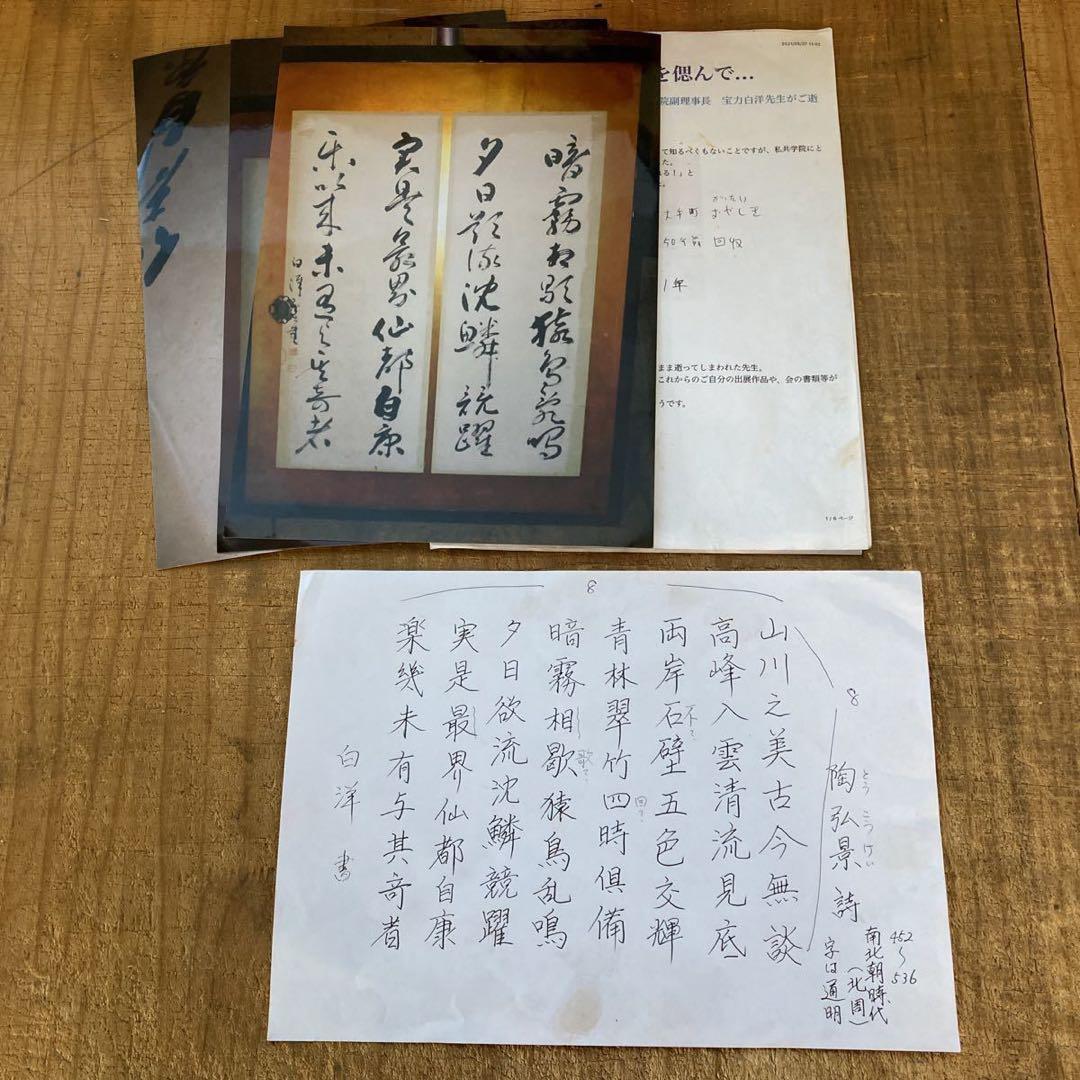 暗霧相歇猿鳥乱鳴
夕日欲流沈鱗競躍
実是最界仙都自康
楽以来未有与其奇者
白洋書
2021/05/27 11:02
を偲んで…
院副理事長　宝力白洋先生がご逝
て知るべくもないことですが、私共学院にと
た。
れる！」と
かったい
大手町 おやしき
50年前 回収
1年
まま逝ってしまわれた先生。
これからのご自分の出展作品や、会の書類等が
うです。
1/6 ページ
8
8
陶弘景 詩
とう こうけい
452〜536
南北朝時代
(北周)
字は通明
山川之美古今無談
高峰入雲清流見底
両岸石壁五色交輝
青林翠竹四時倶備
暗霧相歇猿鳥乱鳴
夕日欲流沈鱗競躍
実是最界仙都自康
楽幾未有与其奇者
白洋 書